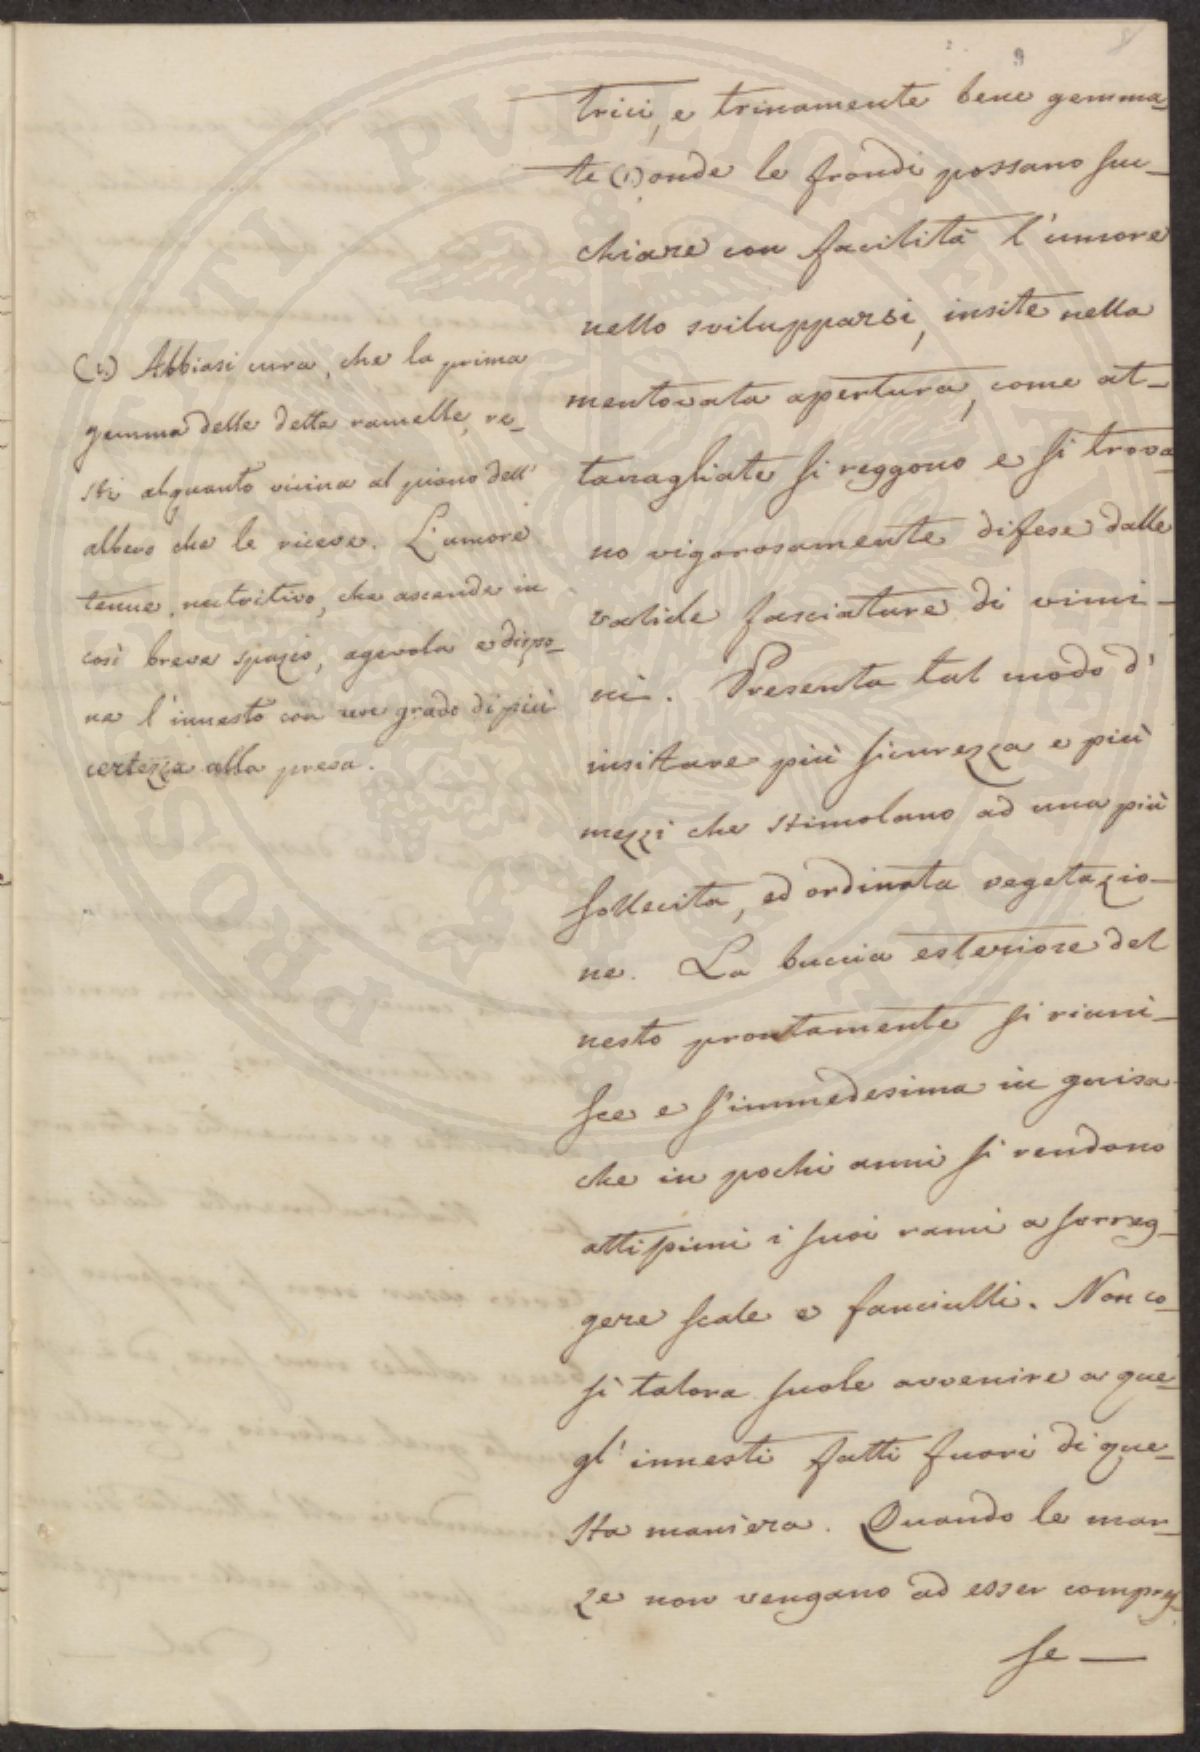 9
trici, e trinamente bene gemma-
te (1.) onde le frondi possano suc-
chiare con facilità l'umore
nello svilupparsi, insite nella
mentovata apertura, come at-
tanagliate si reggono e si trova-
no vigorosamente difese dalle
valide fasciature di vimi-
ni. Presenta tal modo d'
insittare più sicurezza e più
mezzi che stimolano ad una più
sollecita, ed ordinata vegetazio-
ne. La buccia esteriore del
nesto prontamente si riuni-
sce e s'immedesima in guisa
che in pochi anni si rendono
attissimi i suoi rami a sorreg-
gere scale e fanciulli. Non co-
sì talora suole avvenire a que-
gl'innesti fatti fuori di que-
sta maniera. Quando le mar-
ze non vengano ad esser compres-
se —
(1.) Abbiasi cura, che la prima
gemma delle dette ramelle, re-
sti alquanto vicina al piano dell'
albero che le riceve. L'umore
tenue, nutritivo, che ascende in
così breve spazio, agevola e dispo-
ne l'innesto con un grado di più
certezza alla presa.
PROSPERITATI PVBLICAE AVGENDAE